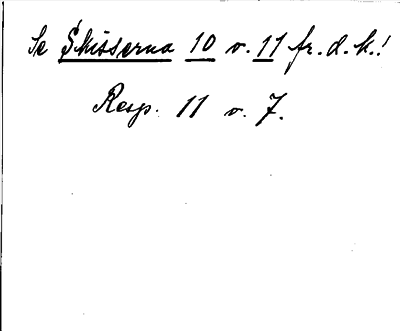 Se Skisserna 10 o. 11 fr. d. k.!
Resp. 11 o. 7.